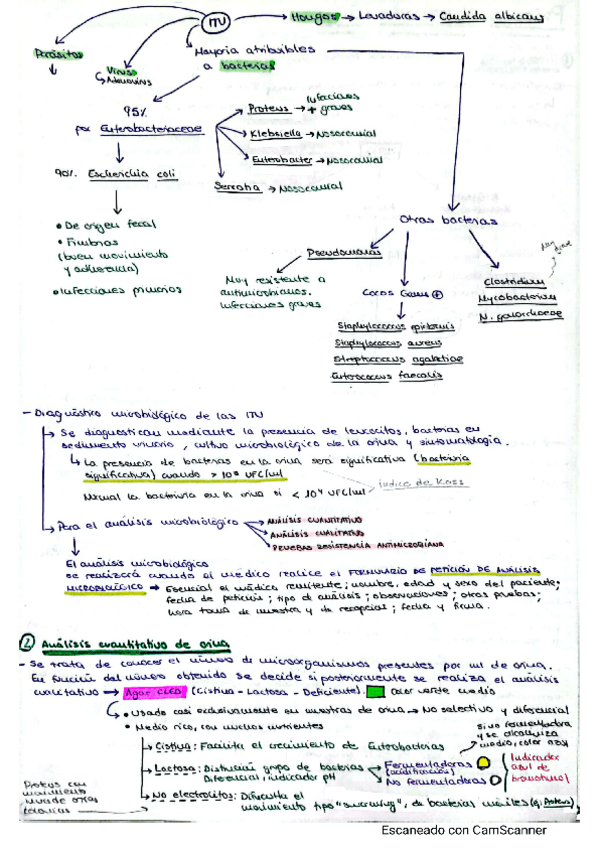 ITU
Hongos → Levaduras → Candida albicans
Parásitos
Virus
→ Adenovirus
Mayoría atribuibles
a bacterias
95%
por Enterobacteriaceae
Proteus → Infecciones
+ graves
Klebsiella → Nosocomial
Enterobacter → Nosocomial
Serratia → Nosocomial
90% Escherichia coli
• De origen fecal
• Fimbrias
(buen movimiento
y adherencia)
• Infecciones primarias
Otras bacterias
Pseudomonas
Muy resistente a
antimicrobianos.
Infecciones graves
Cocos Gram +
Staphylococcus
Staphylococcus aureus
Streptococcus agalactiae
Enterococcus faecalis
Clostridium
Mycobacterium
N. gonorrhoeae
- Diagnóstico microbiológico de las ITU
→ Se diagnostican mediante la presencia de leucocitos, bacterias en
sedimento urinario, cultivo microbiológico de la orina y sintomatología.
↳ La presencia de bacterias en la orina será significativa (bacteriuria
significativa) cuando > 10⁵ UFC/ml
índice de Kass
Normal la bacteriuria en la orina si < 10⁴ UFC/ml
→ Para el análisis microbiológico
ANÁLISIS CUANTITATIVO
ANÁLISIS CUALITATIVO
PRUEBAS RESISTENCIA ANTIMICROBIANA
El análisis microbiológico
se realizará cuando el médico realice el FORMULARIO DE PETICIÓN DE ANÁLISIS
MICROBIOLÓGICO → Esencial el médico remitente; nombre, edad y sexo del paciente;
fecha de petición; tipo de análisis; observaciones; otras pruebas;
hora toma de muestra y de recepción; fecha y firma.
2 Análisis cuantitativo de orina
- Se trata de conocer el número de microorganismos presentes por ml de orina.
En función del número obtenido se decide si posteriormente se realiza el análisis
cualitativo → Agar CLED (Cistina - Lactosa - Deficiente). color verde medio
• Usado casi exclusivamente en muestras de orina → No selectivo y diferencial
• Medio rico, con muchos nutrientes
si no fermentadora
y se alcaliniza
medio, color azul
→ Cistina: Facilita el crecimiento de Enterobacterias
→ Lactosa: Distinción grupo de bacterias
Diferencial, indicador pH
Fermentadoras
(acidificación)
No fermentadoras
Indicador
azul de
bromotimol
→ No electrolitos: Dificulta el
movimiento tipo "swarming", de bacterias móviles (ej: Proteus)
Proteus con
movimiento
invade otras
colonias
Escaneado con CamScanner